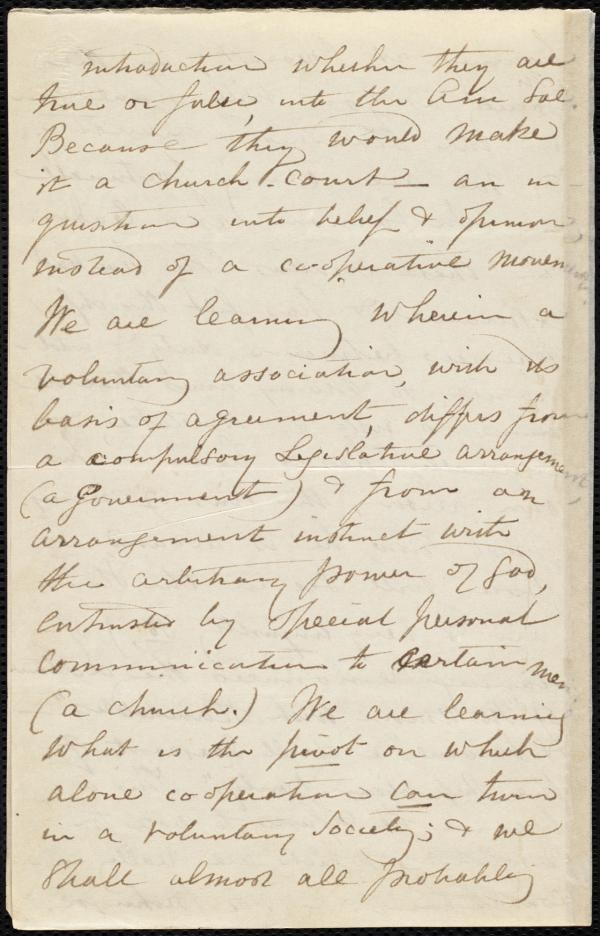 introduction whether they are
true or false, into the Am Soc.
Because they would make
it a church-court – an in-
quisition into belief & opinion
instead of a co-operative movem
We are learning wherein a
voluntary association, with its
basis of agreement, differs from
a compulsory Legislative arrangement
(a Government) & from an
arrangement instinct with
the arbitrary power of God,
entrusted by special personal
communication to certain men
(a church.) We are learning
what is the pivot on which
alone cooperation can turn
in a voluntary Society; & we
shall almost all probably